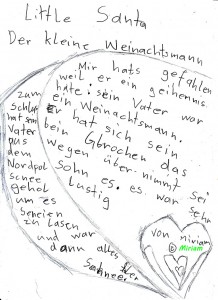 Little Santa
Der kleine Weinachtsmann
Mir hats gefahlen
weil er ein geihemnis
hate: sein Vater war
ein Weinachtsmann.
er hat sich sein
bein Gbrochen das
wegen über. nimmt sei
Sohn es. es war sehr
lustig
zum
schluss
hat sein
Vater
aus
dem
Nordpol
schnee
gehol
um es
Schneien
zu lasen
und war
dann alles
Schnee
von miriam
© Miriam